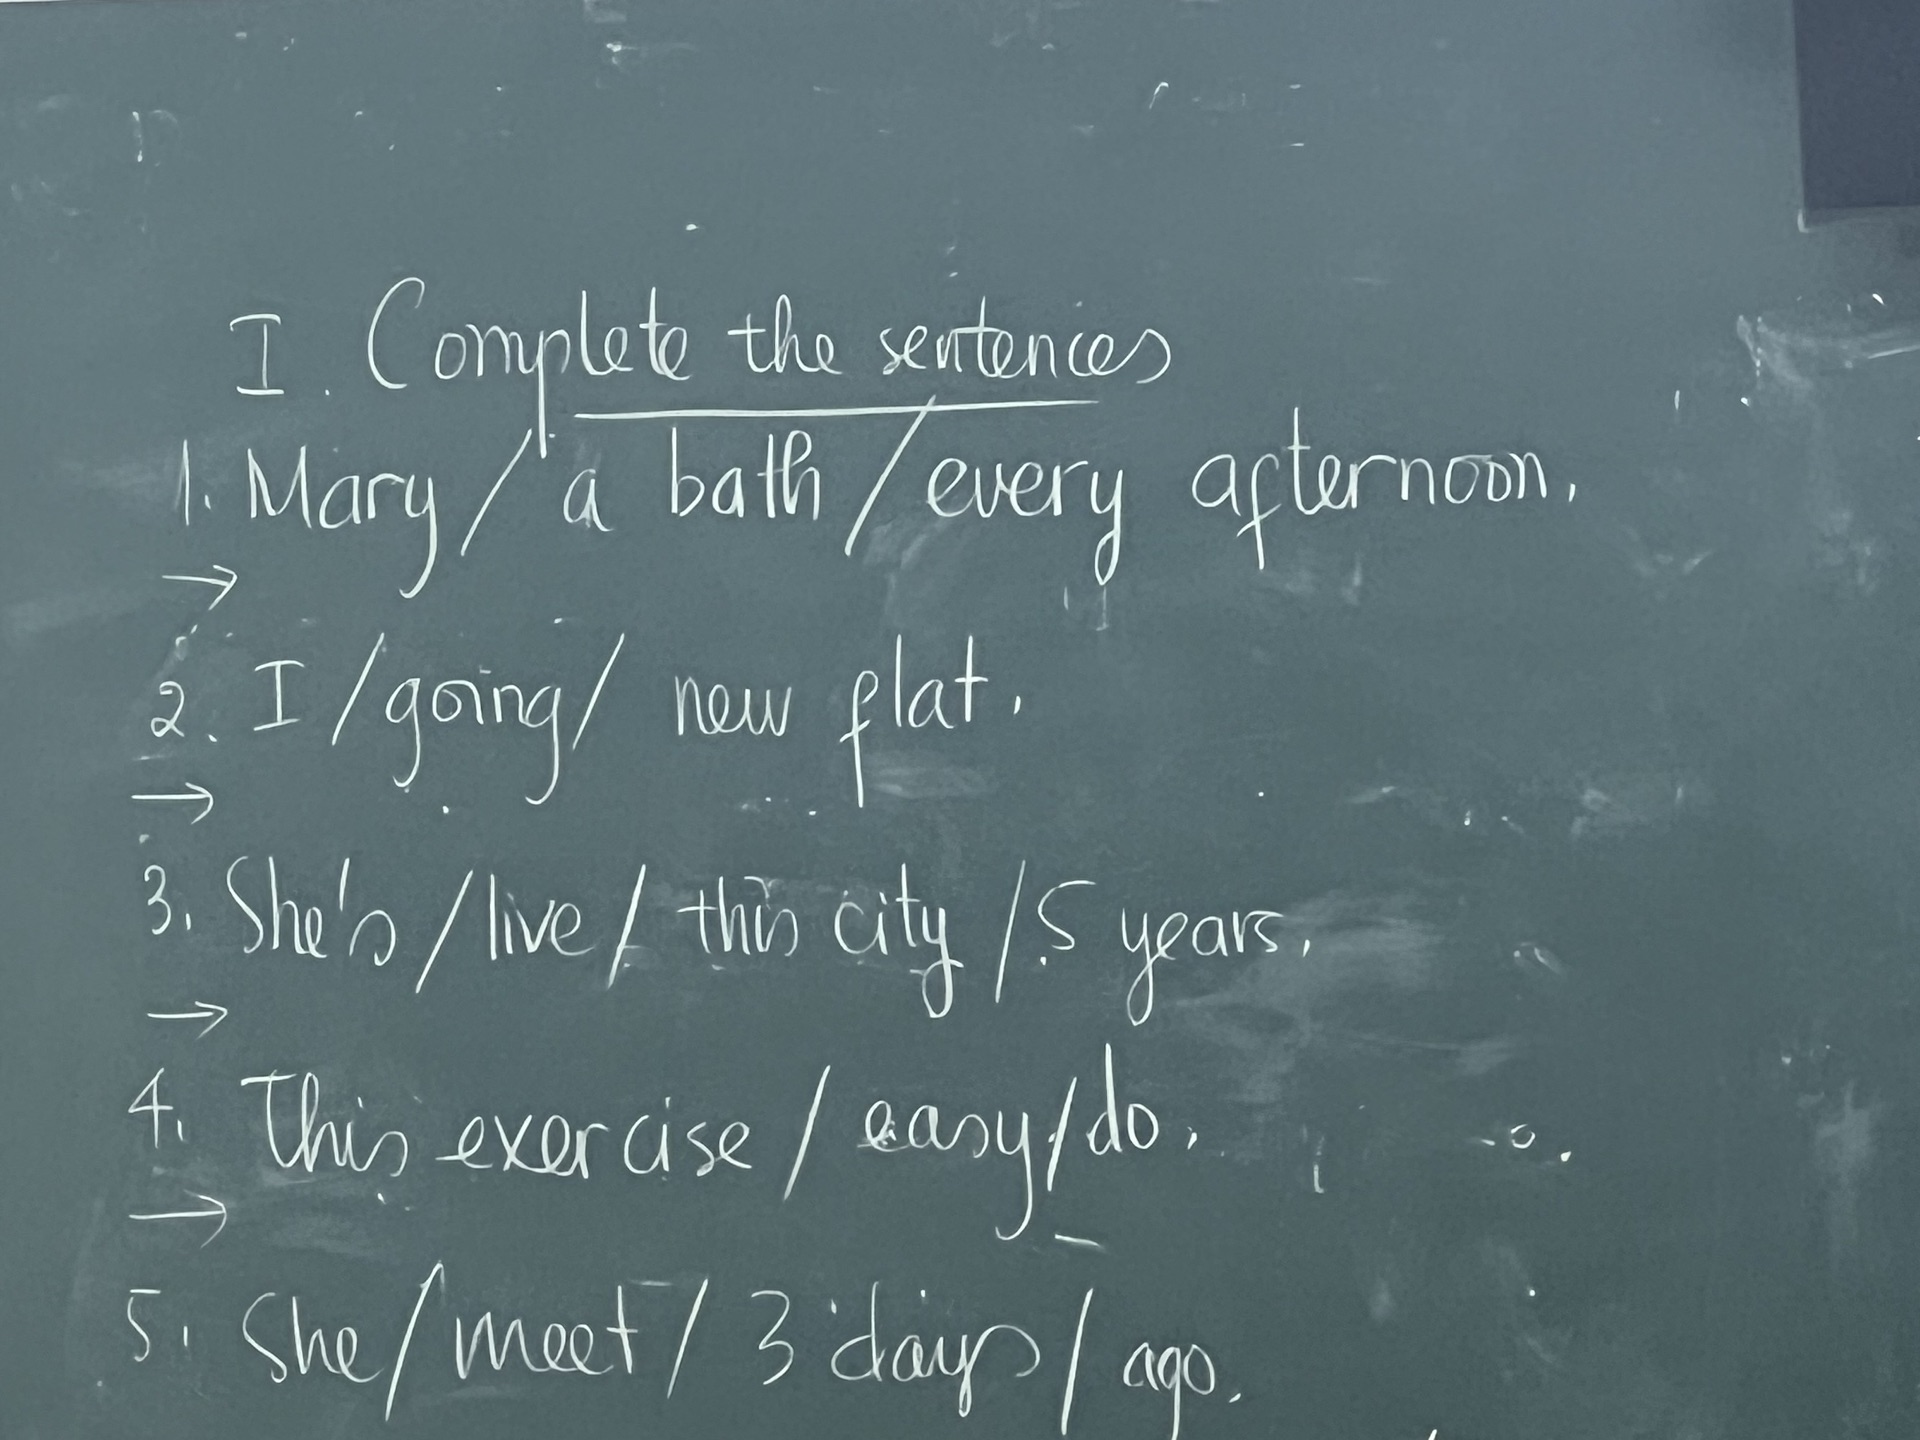 I. Complete the sentences
1. Mary / a bath / every afternoon.
→
2. I / going / new flat.
→
3. She's / live / this city / 5 years.
→
4. This exercise / easy / do.
→
5. She / meet / 3 days / ago.